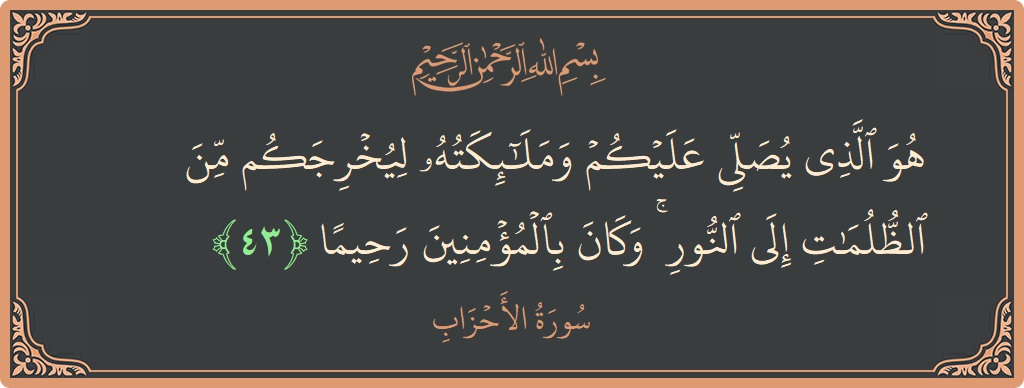 بِسْمِ اللَّهِ الرَّحْمَٰنِ الرَّحِيمِ
هُوَ ٱلَّذِى يُصَلِّى عَلَيْكُمْ وَمَلَـٰٓئِكَتُهُۥ لِيُخْرِجَكُم مِّنَ
ٱلظُّلُمَـٰتِ إِلَى ٱلنُّورِ ۚ وَكَانَ بِٱلْمُؤْمِنِينَ رَحِيمًا ﴿٤٣﴾
سُورَةُ الأَحْزَابِ